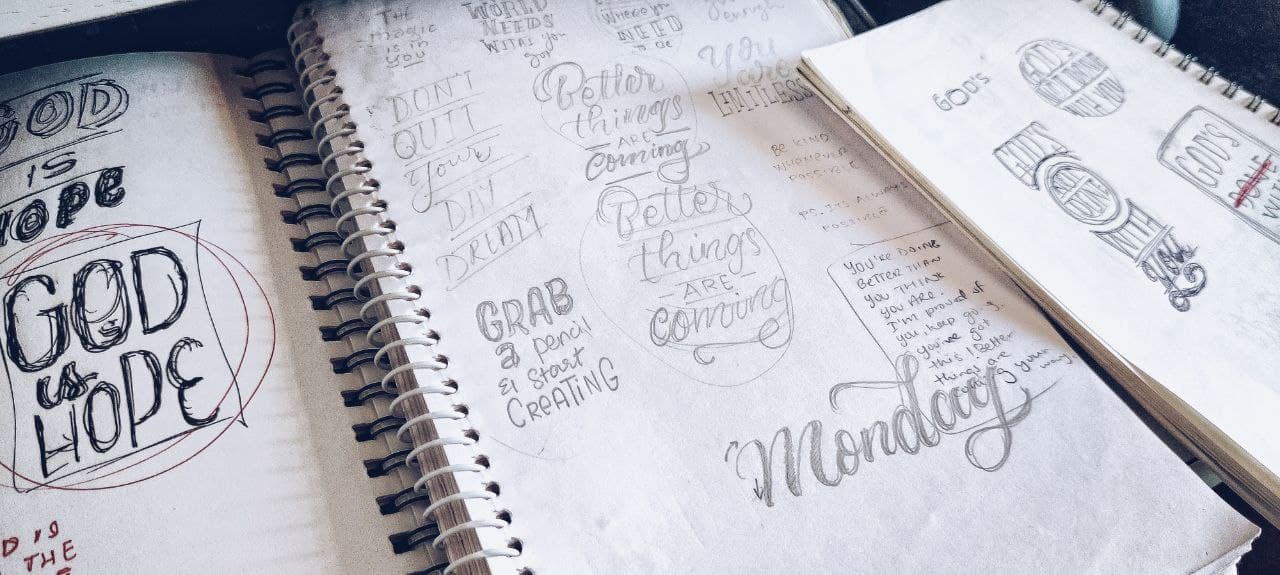 GOD
IS
HOPE
GOD
is
HOPE
IS
THE
THE
magic
is in
you
WORLD
NEEDS
WITAS you
got
WHERE
NEED
TO BE
enough
DON'T
QUIT
Your
DAY
DREAM
Better
things
ARE
coming
You
are
LIMITLESS
BE KIND
WHENEVER
POSSIBLE
PS. ITS ALWAYS
POSSIBLE
GRAB
a pencil
& start
CREATING
Better
things
ARE
coming
YOU'RE DOING
BETTER THAN
YOU THINK
YOU ARE.
I'm proud of
you. keep going.
you've got
this! Better
things are
your
way.
Monday
GOD'S
GOD'S
WITH YOU
GOD'S
WITH
You
GOD'S